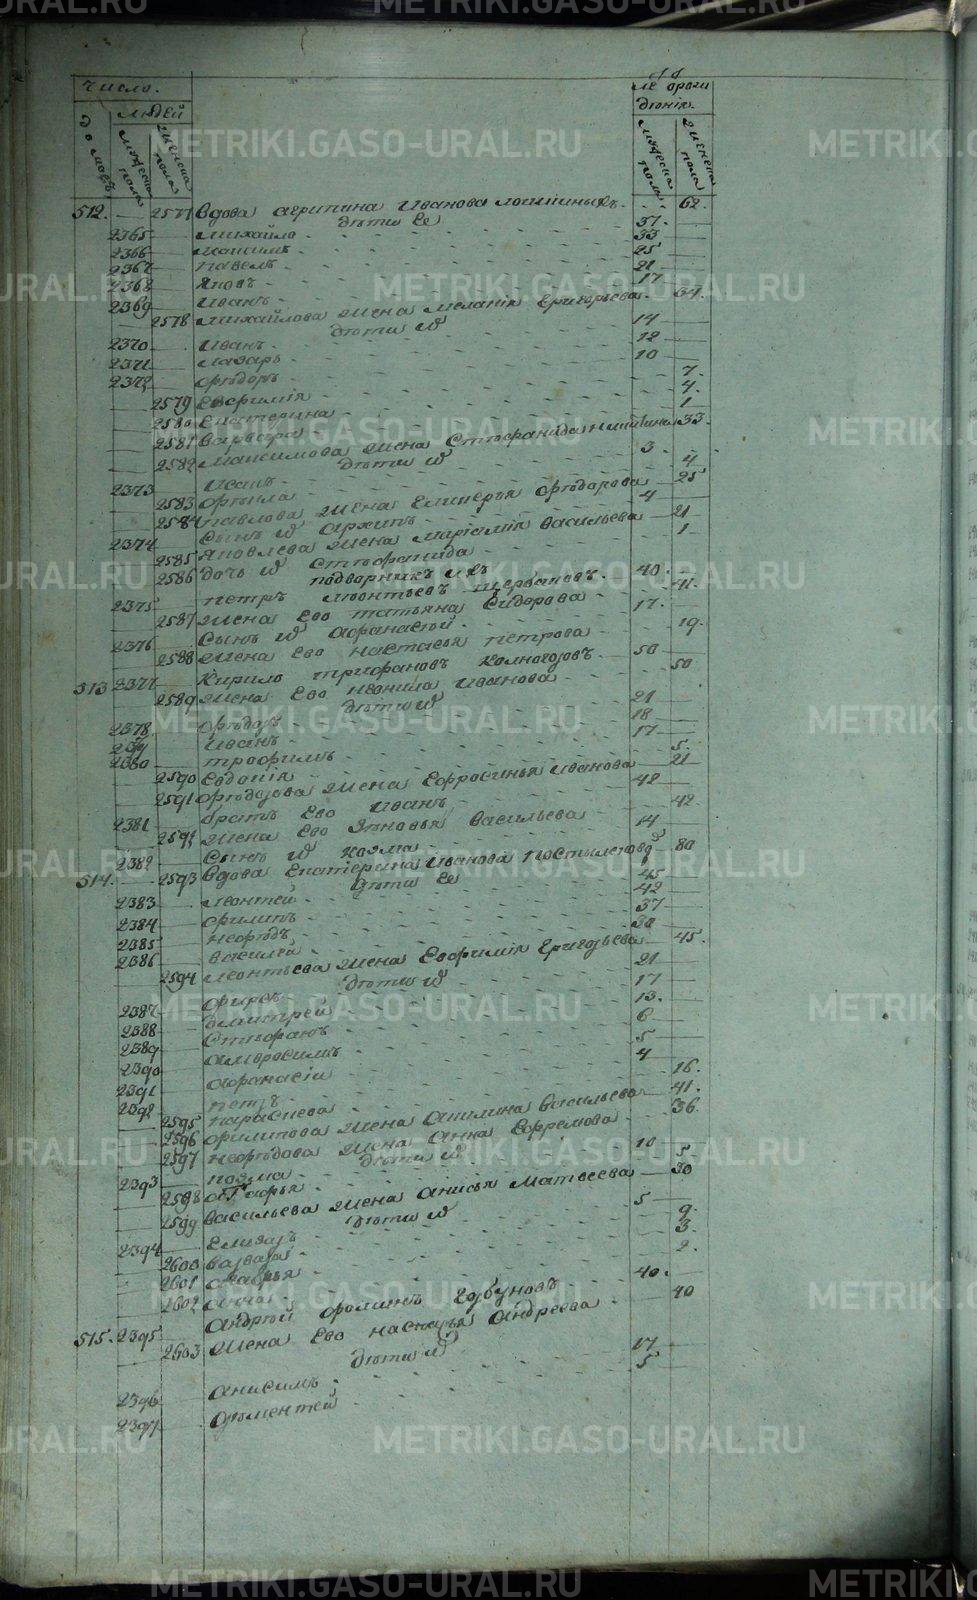 METRIKI.GASO-URAL.RU
число.
людей
домовъ
мужеска пола
женска пола
ле от роги
дения.
мужеска пола
женска пола
512. 2577 вдова агрипина Иванова 62.
дети Ее
2365 михайло 37.
2366 максимъ 33
2367 павелъ 25
2368 яковъ 21
2369 Иванъ 17
2578 михайлова жена мелания Григорьева 34.
дети их
2370 Иванъ 14
2371 лазарь 12
2372 феодоръ 10
2579 Евфимия 7.
2580 Екатерина 4.
2581 варвара 1
2582 максимова жена Стефанида никитина 33.
дети их
2373 Иванъ 3
2583 фекла 4
2584 павлова жена Гликерья феодорова 25
2374 Сынъ их архипъ 4
2585 яковлева жена мариамия васильева 21
2586 дочь их стефанида 1
подворникъ ихъ
2375 петръ леонтьевъ щербаковъ 40.
2587 жена Ево татьяна Сидорова 41.
2376 Сынъ их афанасей 17.
2588 жена Ево настасья петрова 19.
513 2377 Кирило трифановъ колногоровъ 50
2589 жена Ево неонила Иванова 50
дети их
2378 феодоръ 21
2379 Иванъ 18
2380 трофимъ 17
2590 Евдокия 5.
2591 феодорова жена Ефросинья Иванова 21
2381 братъ Ево Иванъ 42
2592 жена Ево Зеновья васильева 42.
2382 Сынъ их козма 14
514. 2593 вдова Екатерина Иванова постылягова 80
дети Ее
2383 леонтей 45
2384 филипъ 42
2385 нефедъ 37
2386 василей 30
2594 леонтьева жена Евфимия Григорьева 45.
дети их
2387 фирсъ 21
2388 дмитрей 17
2389 Стефанъ 13.
2390 амвросимъ 6
2391 афанасии 5
2392 петръ 4
2595 параскева 16.
2596 филипова жена акилина васильева 41.
2597 неофедова жена анна Ефремова 36.
дети их
2393 козма 10
2598 агафья 5.
2599 васильева жена анисья матвеева 30
дети их
2394 Елизаръ 5
2600 варвара 9.
2601 марья 3.
2602 анна 2.
515. 2395 андрей фоминъ Горбуновъ 40.
2603 жена Ево настасья андреева 40
дети их
2396 анисимъ 17
2397 фементей 5